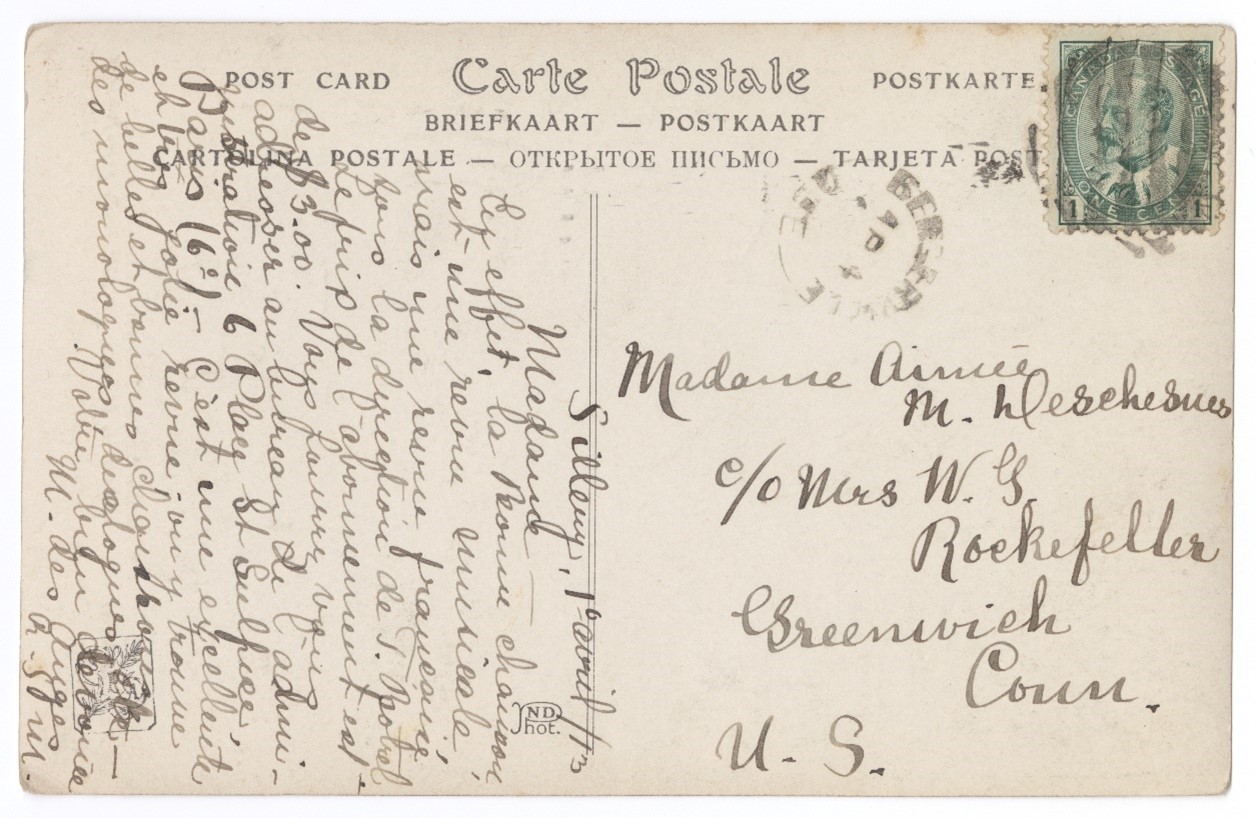 POST CARD Carte Postale POSTKARTE
BRIEFKAART — POSTKAART
CARTOLINA POSTALE — ОТКРЫТОЕ ПИСЬМО — TARJETA POST
CANADA POSTAGE
1 ONE CENT 1
Sillery, 1º avril/13
Madame
En effet, la Bonne chanson,
est une revue musicale
mais une revue française
sous la direction de T. Botrel
Le prix de l'abonnement est
de $3.00. Vous pouvez vous
adresser au bureau de l'admi-
nistration 6 Place St Sulpice
Paris (6º) — C'est une excellente
et très jolie revue où on y trouve
de belles et bonnes chansons
des monologues, dialogues etc —
Votre bien dévouée
M. des Anges
ND
Phot.
Madame Aimée
M. Deschesnes
c/o Mrs W. G.
Rockefeller
Greenwich
Conn.
U. S.